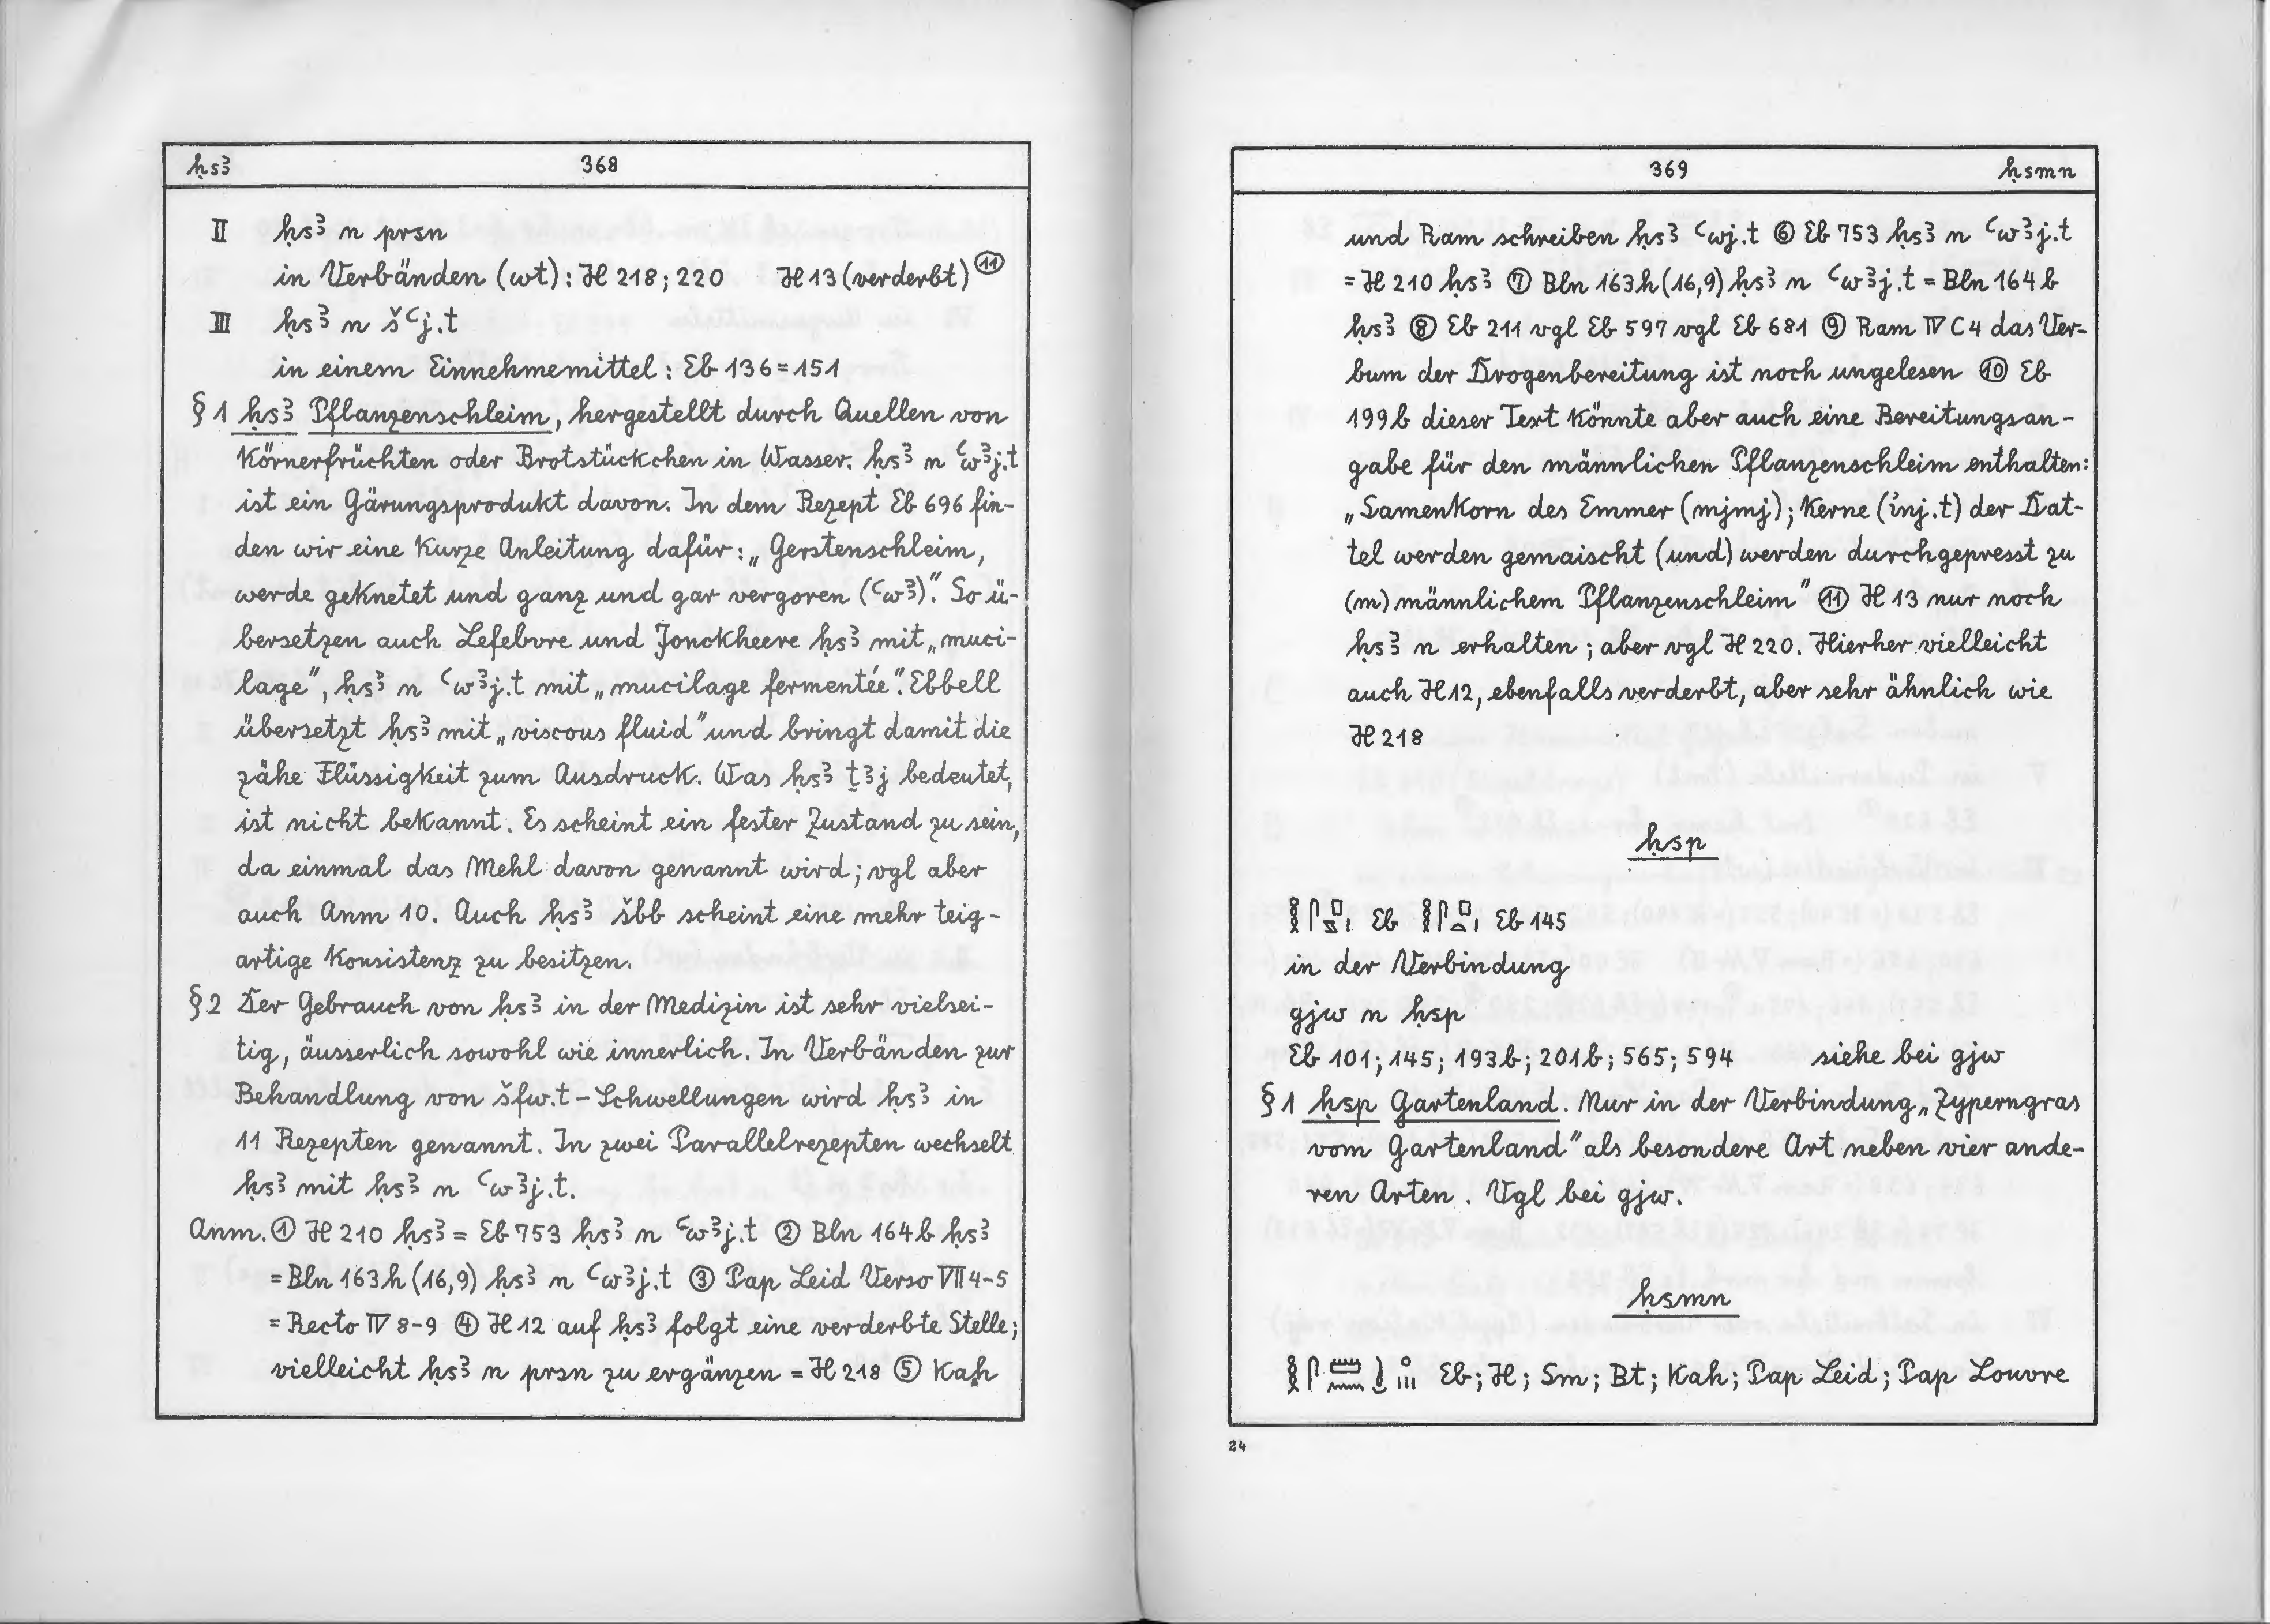 ḥsꜣ 368
II ḥsꜣ n prsn
in Verbänden (wt): H 218; 220 H 13 (verderbt) ⑪
III ḥsꜣ n šꜥj.t
in einem Einnehmemittel: Eb 136 = 151
§ 1 ḥsꜣ Pflanzenschleim, hergestellt durch Quellen von
Körnerfrüchten oder Brotstückchen in Wasser. ḥsꜣ n ꜥwꜣj.t
ist ein Gärungsprodukt davon. In dem Rezept Eb 696 fin-
den wir eine kurze Anleitung dafür: „Gerstenschleim,
werde geknetet und ganz und gar vergoren (ꜥwꜣ)”. So ü-
bersetzen auch Lefebvre und Jonckheere ḥsꜣ mit „muci-
lage”, ḥsꜣ n ꜥwꜣj.t mit „mucilage fermentée”. Ebbell
übersetzt ḥsꜣ mit „viscous fluid” und bringt damit die
zähe Flüssigkeit zum Ausdruck. Was ḥsꜣ ṯꜣj bedeutet,
ist nicht bekannt. Es scheint ein fester Zustand zu sein,
da einmal das Mehl davon genannt wird; vgl aber
auch Anm 10. Auch ḥsꜣ šbb scheint eine mehr teig-
artige Konsistenz zu besitzen.
§ 2 Der Gebrauch von ḥsꜣ in der Medizin ist sehr vielsei-
tig, äusserlich sowohl wie innerlich. In Verbänden zur
Behandlung von šfw.t-Schwellungen wird ḥsꜣ in
11 Rezepten genannt. In zwei Parallelrezepten wechselt
ḥsꜣ mit ḥsꜣ n ꜥwꜣj.t.
Anm. ① H 210 ḥsꜣ = Eb 753 ḥsꜣ n ꜥwꜣj.t ② Bln 164 b ḥsꜣ
= Bln 163 h (16,9) ḥsꜣ n ꜥwꜣj.t ③ Pap Leid Verso VII 4-5
= Recto IV 8-9 ④ H 12 auf ḥsꜣ folgt eine verderbte Stelle;
vielleicht ḥsꜣ n prsn zu ergänzen = H 218 ⑤ Kah
369 ḥsmn
und Ram schreiben ḥsꜣ ꜥwj.t ⑥ Eb 753 ḥsꜣ n ꜥwꜣj.t
= H 210 ḥsꜣ ⑦ Bln 163 h (16,9) ḥsꜣ n ꜥwꜣj.t = Bln 164 b
ḥsꜣ ⑧ Eb 211 vgl Eb 597 vgl Eb 681 ⑨ Ram IV C 4 das Ver-
bum der Drogenbereitung ist noch ungelesen ⑩ Eb
199 b dieser Text könnte aber auch eine Bereitungsan-
gabe für den männlichen Pflanzenschleim enthalten:
„Samenkorn des Emmer (mjmj); Kerne (ỉnj.t) der Dat-
tel werden gemaischt (und) werden durchgepresst zu
(m) männlichem Pflanzenschleim” ⑪ H 13 nur noch
ḥsꜣ n erhalten; aber vgl H 220. Hierher vielleicht
auch H 12, ebenfalls verderbt, aber sehr ähnlich wie
H 218
ḥsp
Eb Eb 145
in der Verbindung
gjw n ḥsp
Eb 101; 145; 193 b; 201 b; 565; 594 siehe bei gjw
§ 1 ḥsp Gartenland. Nur in der Verbindung „Zyperngras
vom Gartenland” als besondere Art neben vier ande-
ren Arten. Vgl bei gjw.
ḥsmn
Eb; H; Sm; Bt; Kah; Pap Leid; Pap Louvre
24